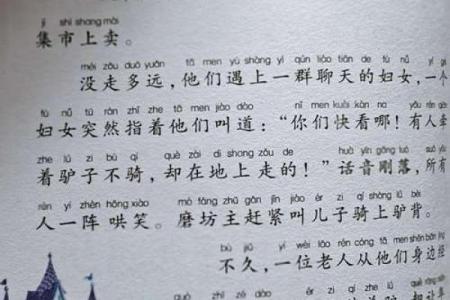 jí shì shang mài
集市上卖。
méi zǒu duō yuǎn tā men yù shàng yì qún liáo tiān de fù nǚ yí
没走多远，他们遇上一群聊天的妇女，一个
fù nǚ tū rán zhǐ zhe tā men jiào dào nǐ men kuài kàn na yǒu rén qiān
妇女突然指着他们叫道：“你们快看哪！有人牵
zhe lǘ zi bù qí què zài dì shang zǒu de huà yīn gāng luò suǒ yǒu
着驴子不骑，却在地上走的！”话音刚落，所有
rén yí zhèn hōng xiào mò fáng zhǔ gǎn jǐn jiào ér zi qí shàng lǘ bèi
人一阵 哄笑。磨坊主赶紧叫儿子骑上驴背。
bù jiǔ yí wèi lǎo rén cóng tā men shēn biān jīng
不久，一位老人从他们身边经